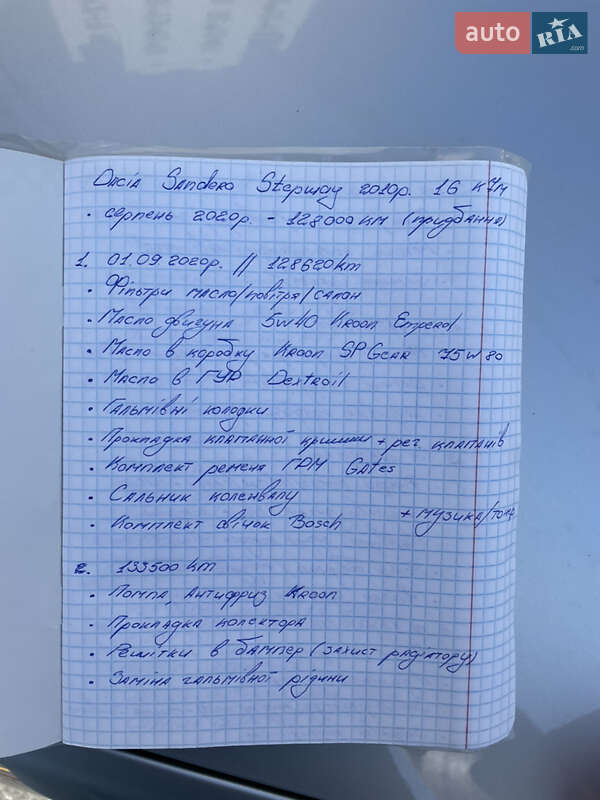 auto RIA .com
Dacia Sandero Stepway 2010р. 16 к7м
• серпень 2020р. - 128000 км (придбання)
1. 01.09.2020р. // 128620km
• Фільтри масло/повітря/салон
• Масло двигуна 5w40 Kroon Emperol
• Масло в коробку Kroon SP Gear 75w80
• Масло в ГУР Dextroil
• Гальмівні колодки
• Прокладка клапанної кришки + рег клапанів
• Комплект ременя ГРМ Gates
• Сальник колєнвалу
• Комплект свічок Bosch + музика/
2. 133500 km
• Помпа, Антифриз Kroon
• Прокладка колектора
• Решітки в бампер (захист радіатору)
• Заміна гальмівної рідини